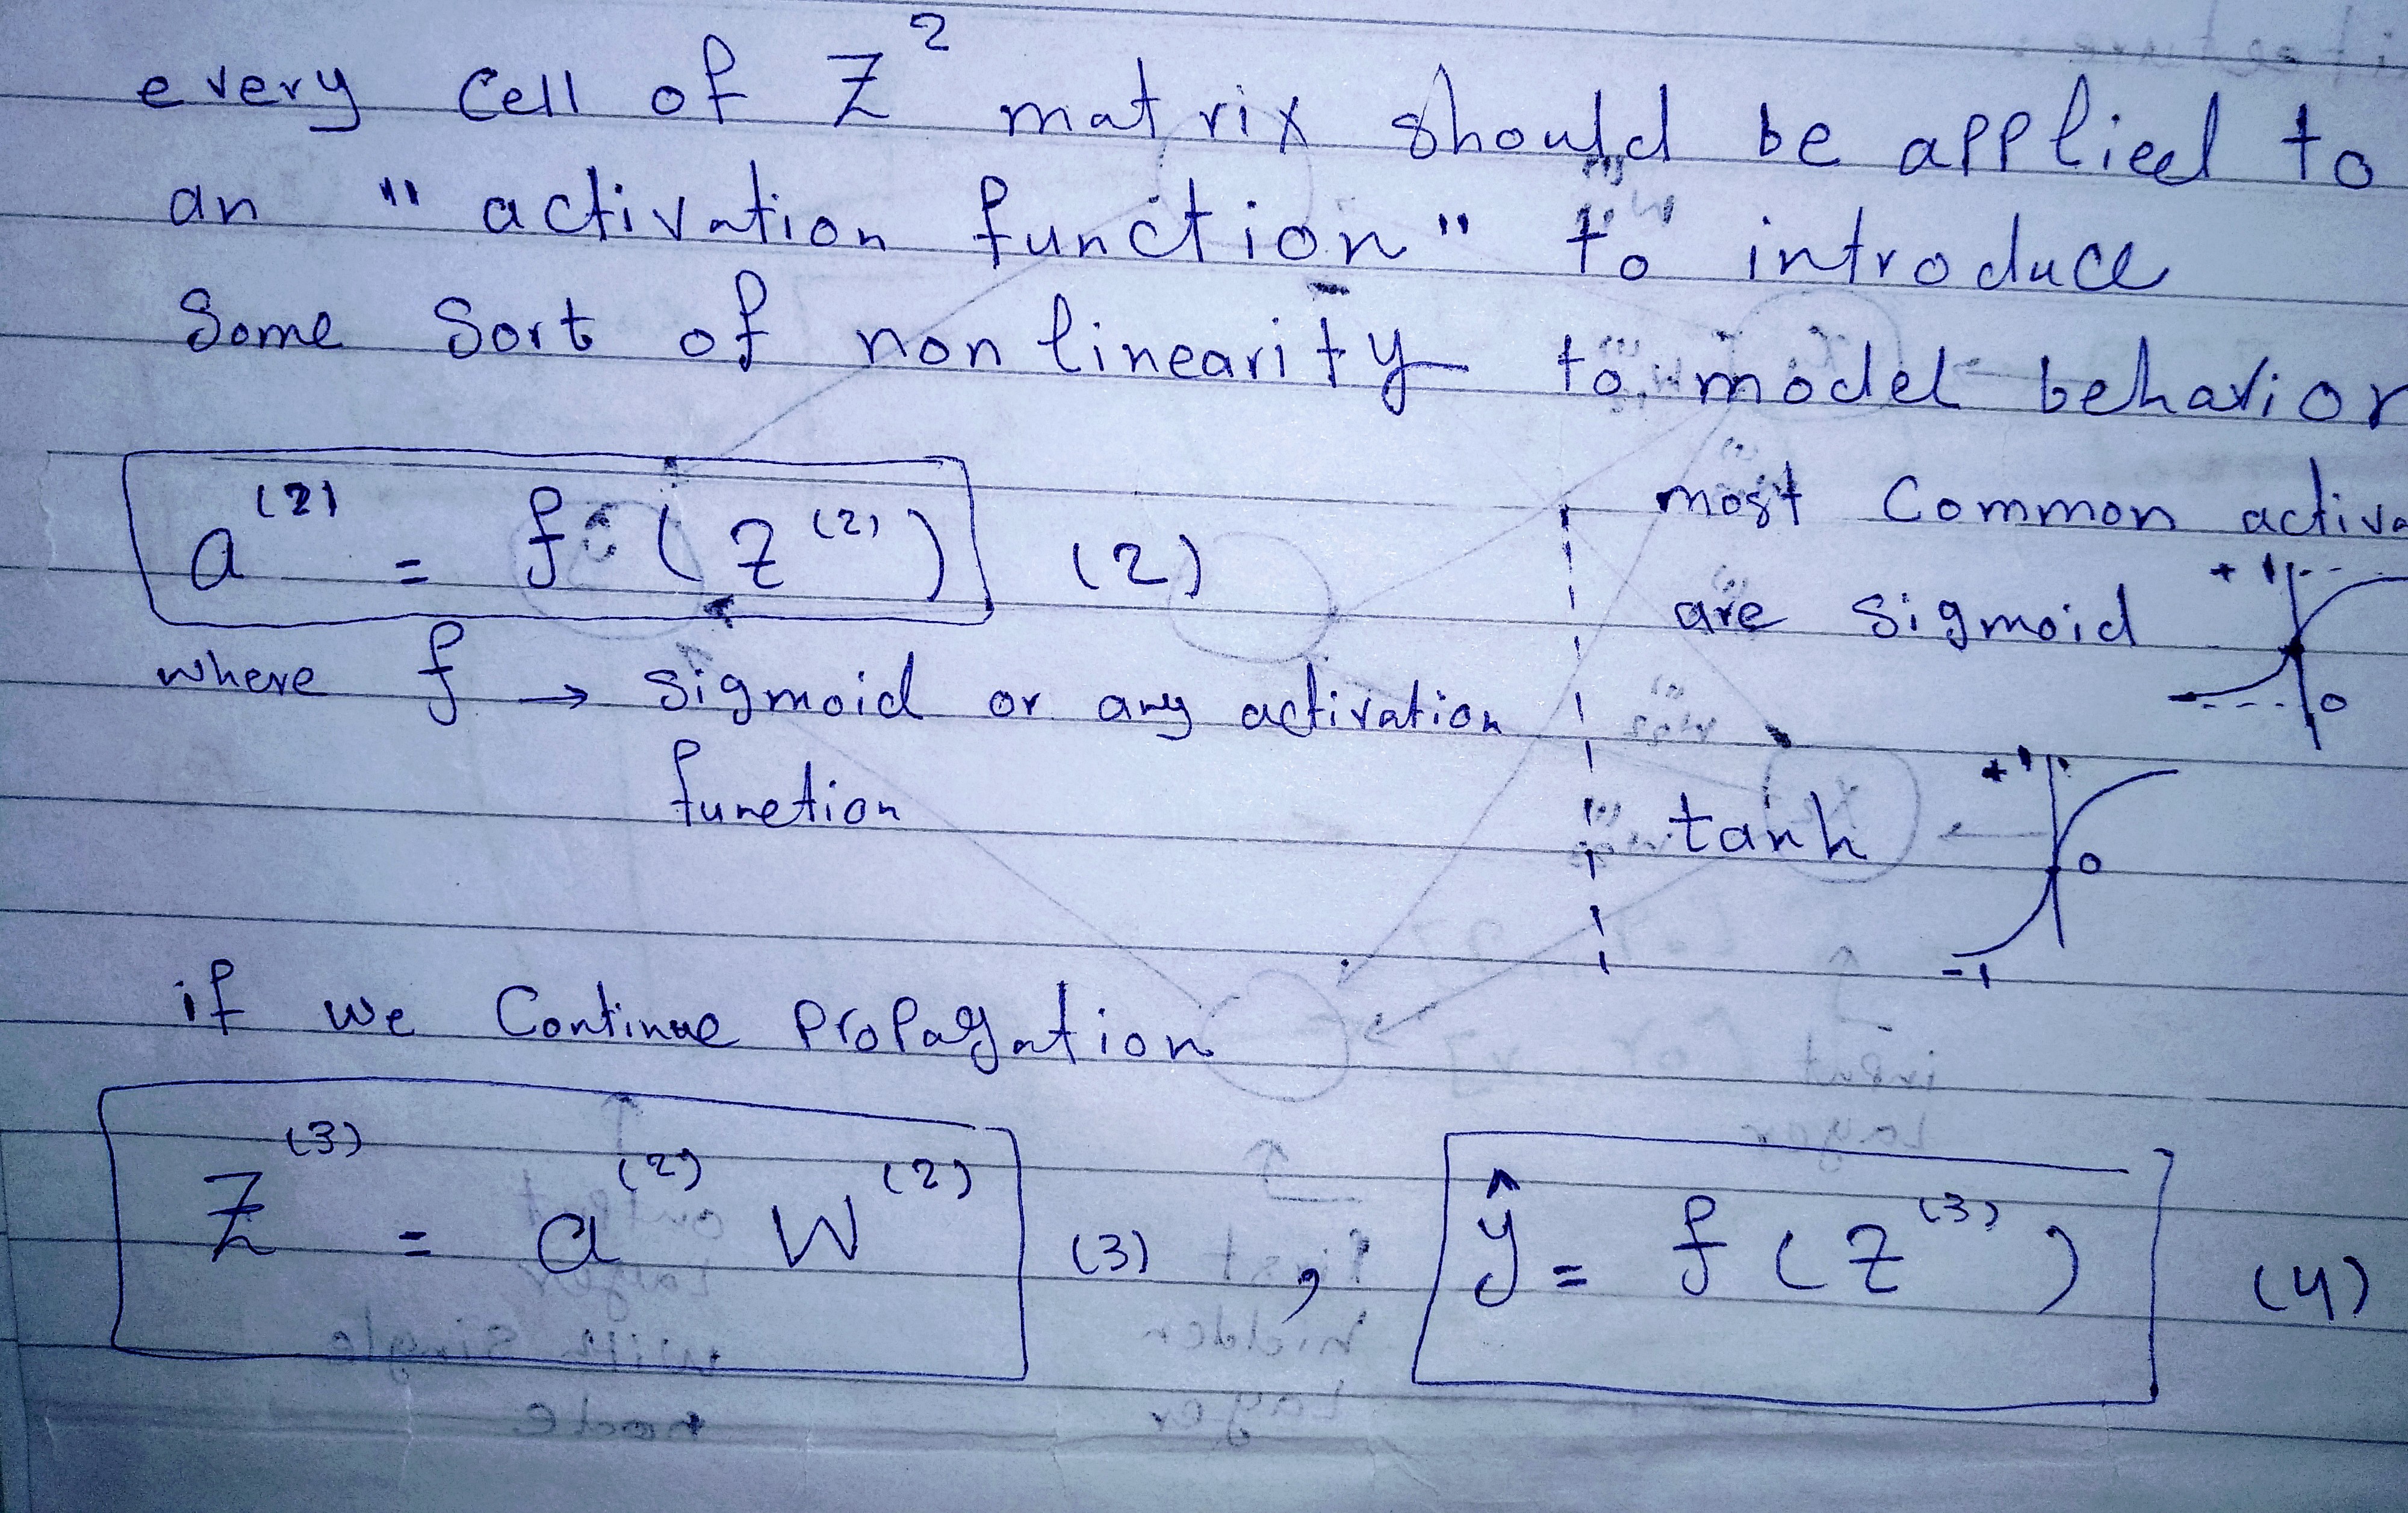 every cell of Z²
matrix should be applied to
an "activation function" to introduce
Some sort of non linearity to model behavior
a⁽²⁾ = f(z⁽²⁾) (2)
where f → sigmoid or any activation
function
most common activa
are sigmoid
+1
0
tanh
+1
0
-1
if we continue propagation
Z⁽³⁾ = a⁽²⁾ W⁽²⁾ (3) , ŷ = f(z⁽³⁾) (4)